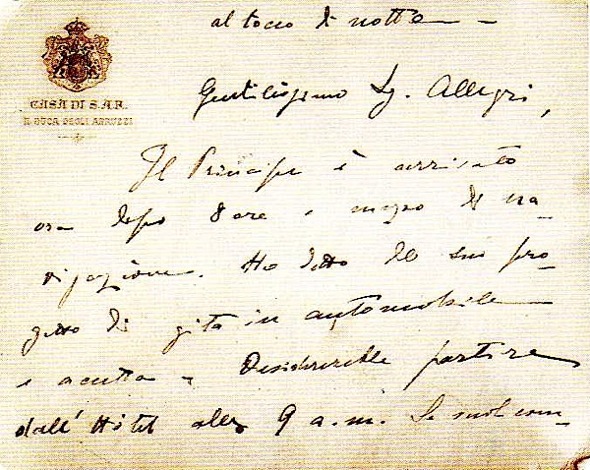 al tocco di notte —
CASA DI S.A.R.
IL DUCA DEGLI ABRUZZI
Gentilissimo Sg. Allegri,
Il Principe è arrivato
ora dopo 8 ore e mezzo di na-
vigazione. Ho detto del suo pro-
getto di gita in automobile
e accetta - Desidererebbe partire
dall'Hôtel alle 9 a.m. Se vuol com-